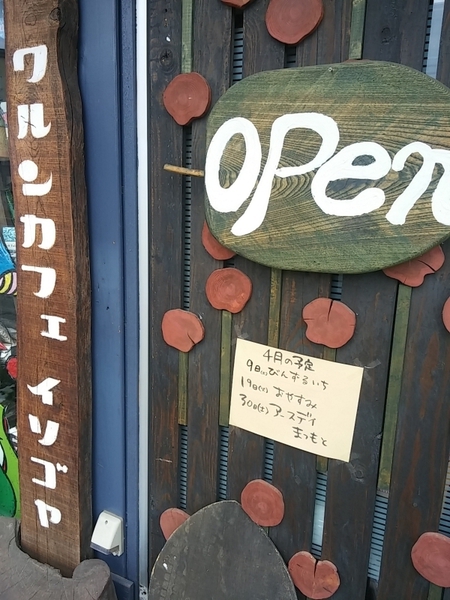 ワルンカフェ イソゴヤ
open
4月の予定
9日(土)びんずるいち
19日(火)おやすみ
30日(土)アースデイ
まつもと